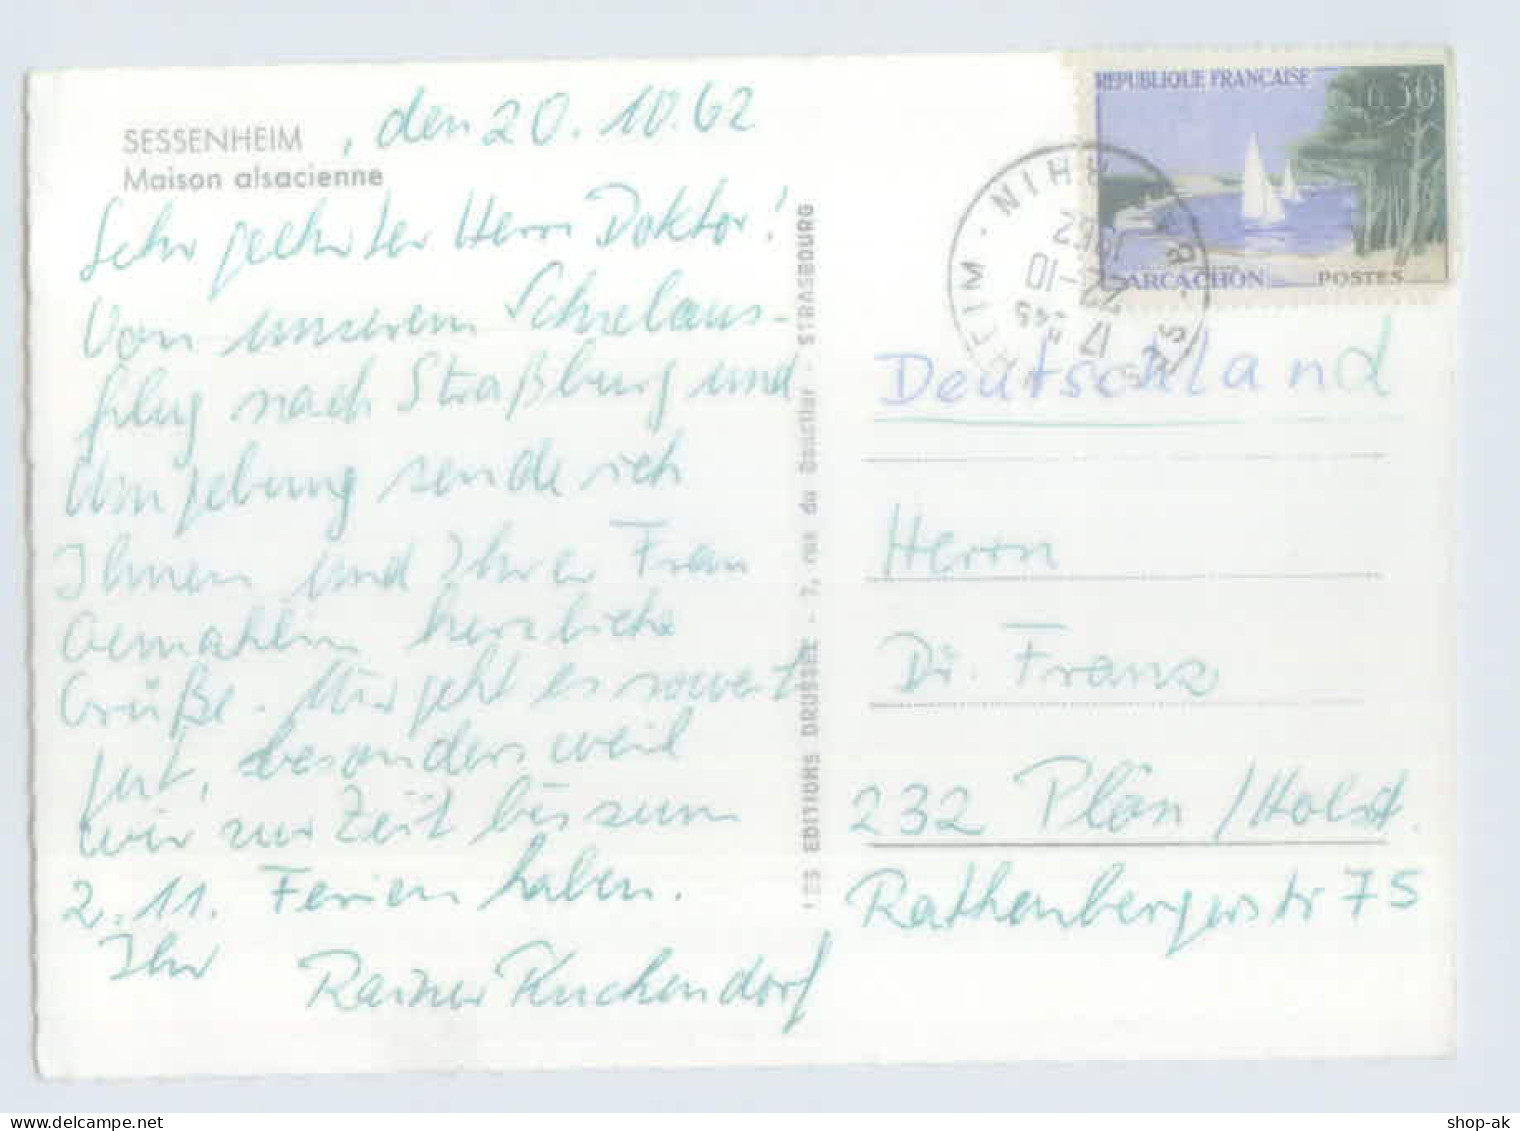 SESSENHEIM
, den 20.10.62
Maison alsacienne
Sehr geehrter Herr Doktor!
Von unserem Schulaus-
flug nach Straßburg und
Umgebung sende ich
Ihnen und Ihrer Frau
Gemahlin herzliche
Grüße. Mir geht es soweit
gut, besonders weil
wir zur Zeit bis zum
2.11. Ferien haben.
Ihr
Rainer Kuchendorf
LES EDITIONS DRUSSEL - 7, rue du - STRASBOURG
REPUBLIQUE FRANÇAISE
0,30
ARCACHON POSTES
17 H 45
22-10
1962
RHIN
Deutschland
Herrn
Dr. Franz
232 Plön /Holst.
Rathenbergerstr 75
shop-ak